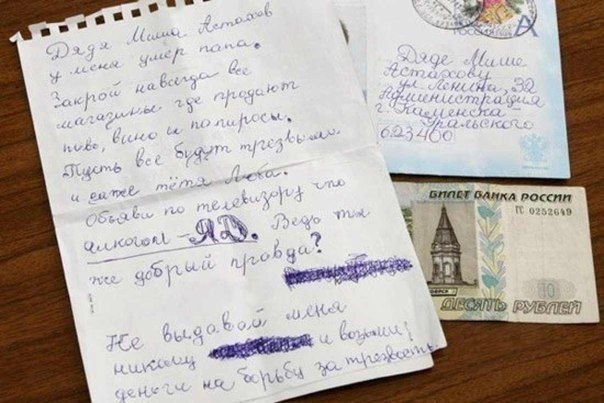 Дядя Миша Астахов
у меня умер папа.
Закрой навсегда все
магазины где продают
пиво, вино и попиросы.
Пусть все будут трезвыми
и даже тётя Люба.
Объяви по телевизору что
алкоголь - ЯД. Ведь ты
же добрый правда?
Не выдавай меня
никому и возьми
деньги на борьбу за трезвость
А
Дяде Мише
Астахову
ул. Ленина, 32
Администрация
г. Каменска
Уральского
623400
БИЛЕТ БАНКА РОССИИ
ГС 0252649
10
ДЕСЯТЬ РУБЛЕЙ